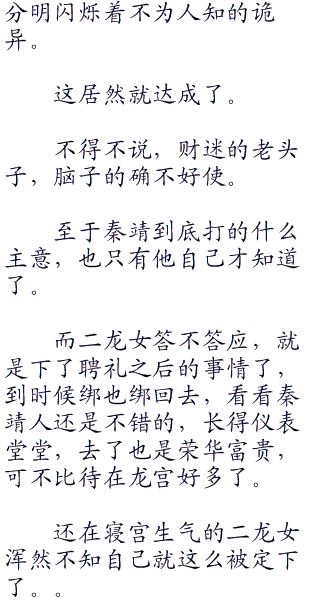 分明闪烁着不为人知的诡
异。
这居然就达成了。
不得不说，财迷的老头
子，脑子的确不好使。
至于秦靖到底打的什么
主意，也只有他自己才知道
了。
而二龙女答不答应，就
是下了聘礼之后的事情了，
到时候绑也绑回去，看看秦
靖人还是不错的，长得仪表
堂堂，去了也是荣华富贵，
可不比待在龙宫好多了。
还在寝宫生气的二龙女
浑然不知自己就这么被定下
了。。